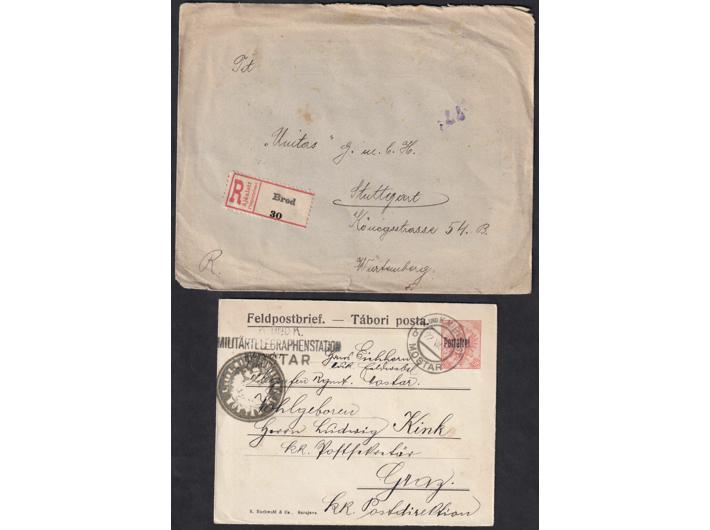 Tit
"Unitas" G. m. b. H.
Stuttgart
Königstrasse 54. B.
Würtemberg.
R.
R
Ajánlott
Brod
30
Feldpostbrief. — Tábori posta.
K. UND K.
MILITÄRTELEGRAPHENSTATION
MOSTAR
MOSTAR
Portofrei
Eichhorn
Wohlgeboren
Herrn Ludwig Kink
k.k. Postsekretär
Graz.
k.k. Postdirektion